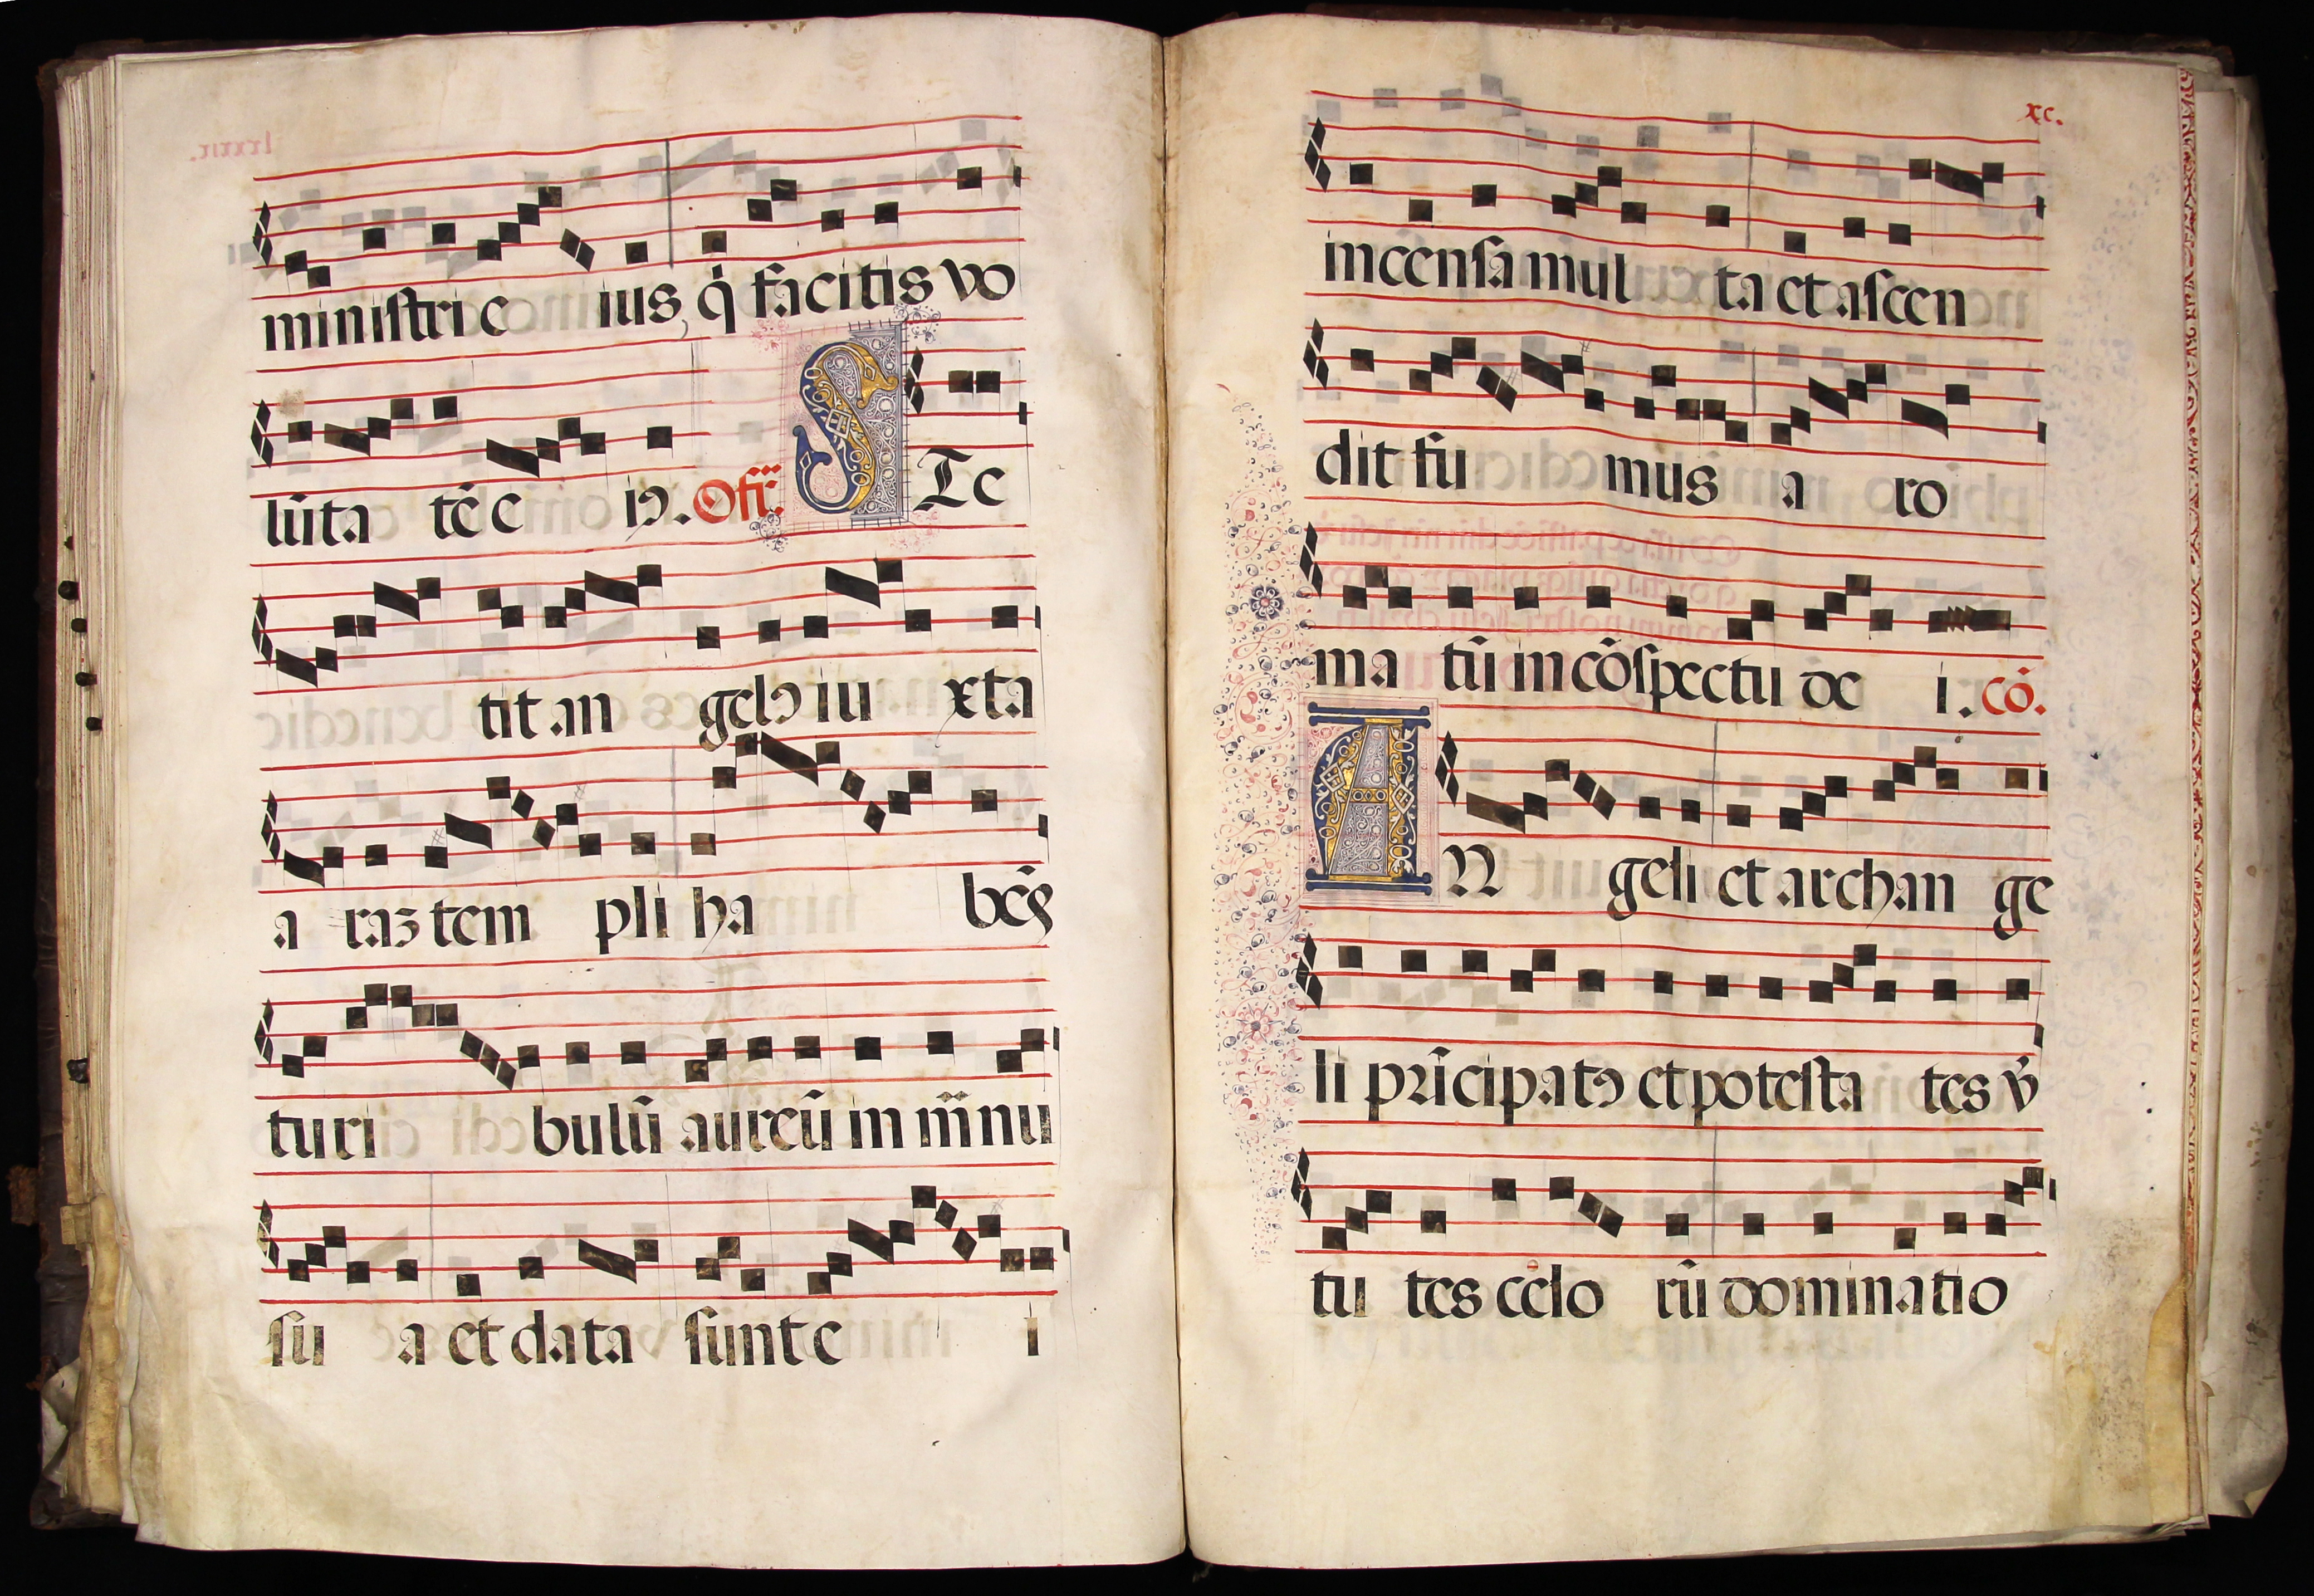 ministri e ius, q̇ facitis vo
lūta tē e iꝰ. Ofr̄. S Te
tit an gelꝰ iu xta
a raꝫ tem pli ha bēs
turi bulū aureū in m̄nu
su a et data sunt e i
xc.
incensa mul ta et ascen
dit fu mus a ro
ma tū in cōspectu de i. cō.
A N geli et archan ge
li prīcipatꝰ et potesta tes v̄
tu tes celo rū dominatio